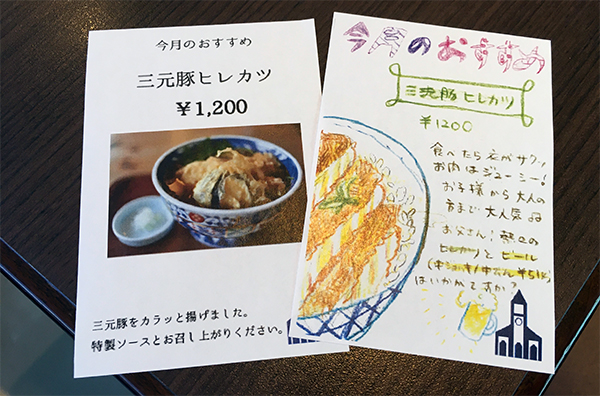 今月のおすすめ
三元豚ヒレカツ
¥1,200
三元豚をカラッと揚げました。
特製ソースとお召し上がりください。
今月のおすすめ
三元豚ヒレカツ
¥1200
食べたら衣がサクッ
お肉はジューシー!
お子様から大人の
方まで大人気
お父さん!熱々の
ヒレカツとビール
はいかがですか?